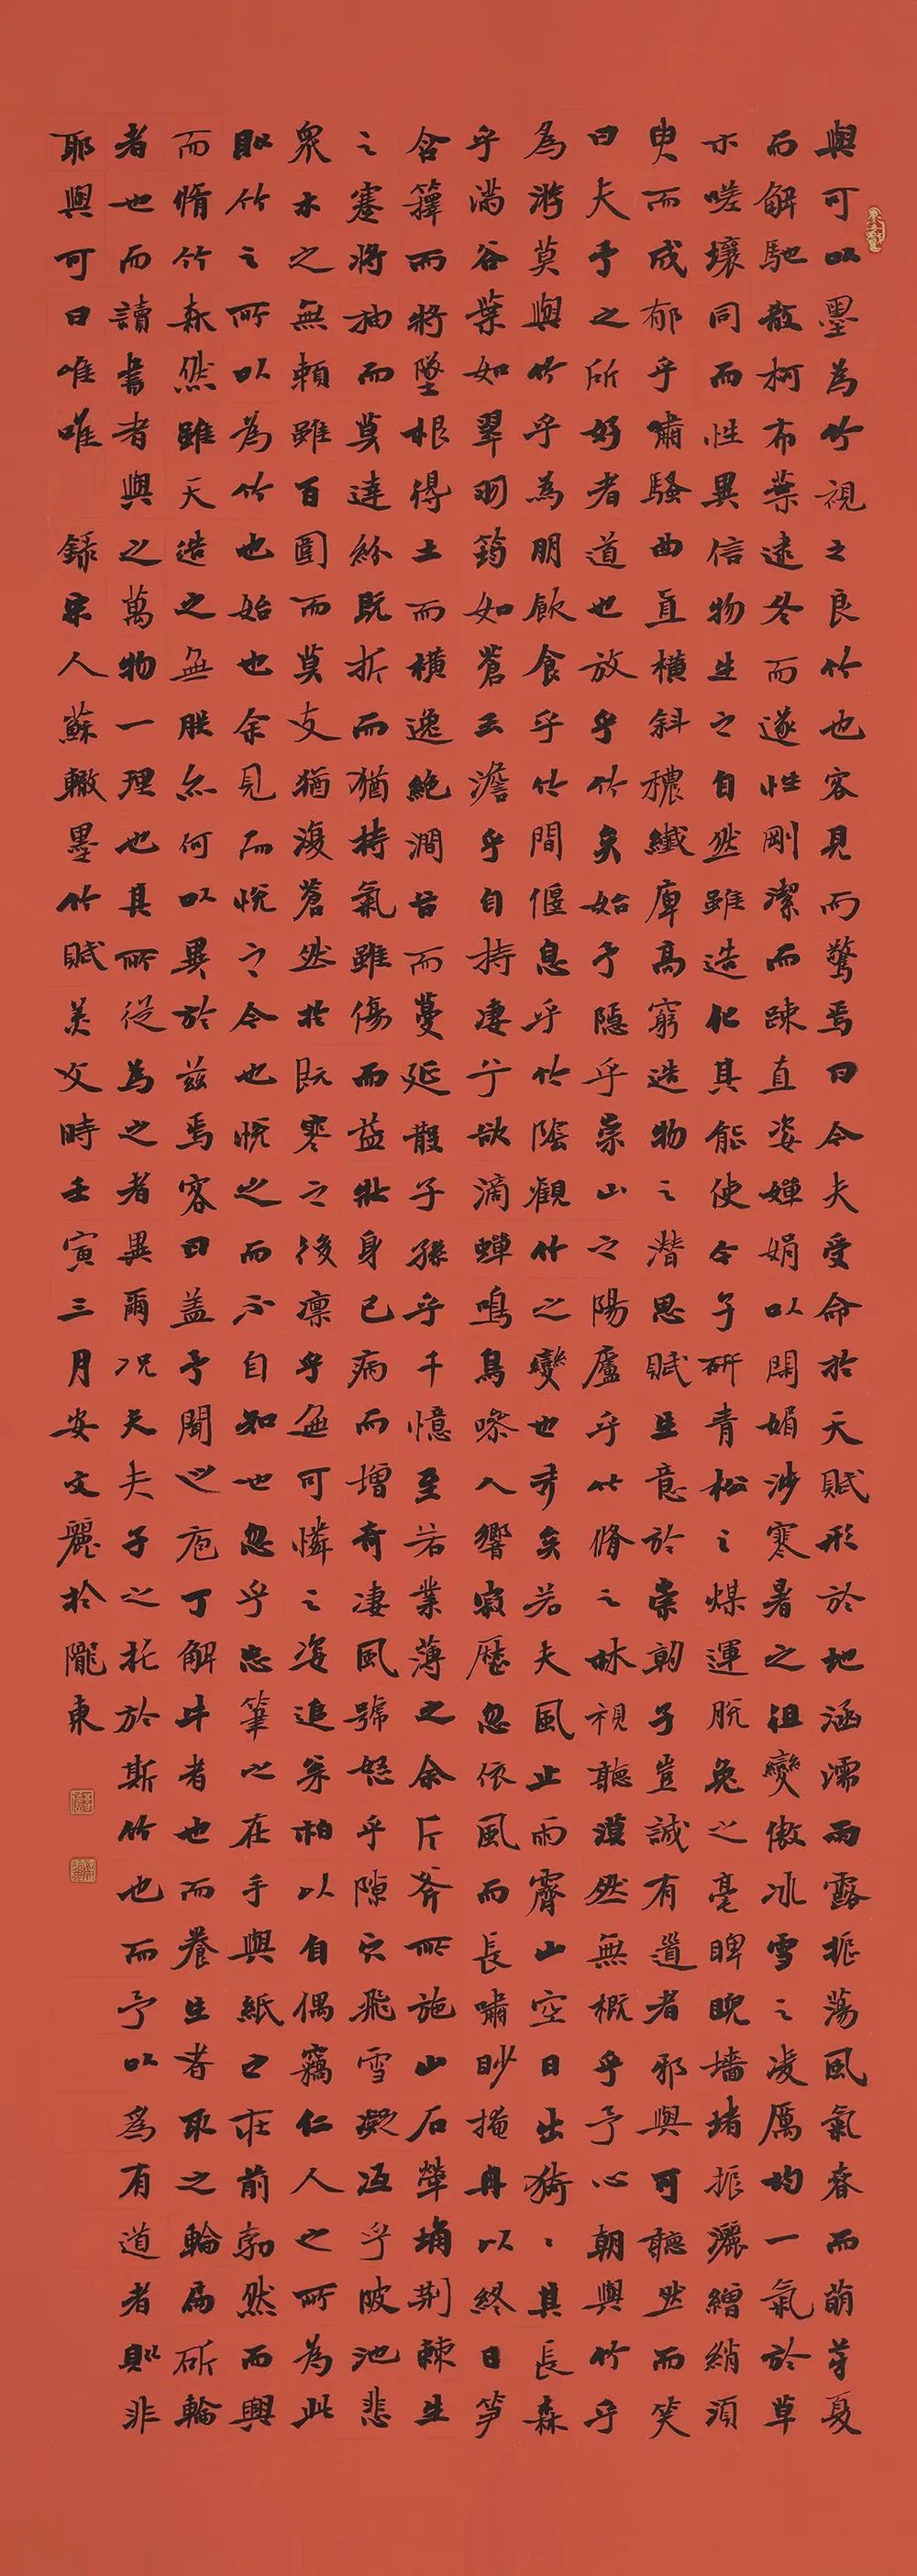 與可以墨為竹視之良竹也客見而驚焉曰今夫受命於天賦形於地涵濡雨露振蕩風氣春而萌芽夏
而解馳散柯布葉逮冬而遂性剛潔而疎直姿嬋娟以閑媚涉寒暑之徂變傲冰雪之凌厲均一氣於草
木嗟壤同而性異信物生之自然雖造化其能使今子研青松之煤運脫兔之毫睥睨墻堵振灑繒綃須
臾而成郁乎肅騷曲直橫斜穠纖庳高窮造物之潛思賦生意於崇朝子豈誠有道者邪與可聽然而笑
曰夫予之所好者道也放乎竹矣始予隱乎崇山之陽廬乎竹脩之林視聽漠然無概乎予心朝與竹乎
為游莫與竹乎為朋飲食乎竹間偃息乎竹陰觀竹之變也多矣若夫風止雨霽山空日出猗猗其長森
乎滿谷葉如翠羽筠如蒼玉澹乎自持凄兮欲滴蟬鳴鳥噪人響寂歷忽依風而長嘯眇掩冉以終日笋
含籜而將墜根得土而橫逸絕澗谷而蔓延散子孫乎千憶至若叢薄之余斤斧所施山石犖埆荊棘生
之蹇將抽而莫達紛既折而猶持氣雖傷而益壯身已病而增奇凄風號怒乎隙穴飛雪凝沍乎陂池悲
眾木之無賴雖百圍而莫支猶復蒼然於既寒之後凜乎無可憐之姿追松柏以自偶竊仁人之所為此
則竹之所以為竹也始也余見而悅之今也悅之而不自知也忽乎忘筆之在手與紙之在前勃然而興
而脩竹森然雖天造之無朕亦何以異於茲焉客曰蓋予聞之庖丁解牛者也而養生者取之輪扁斫輪
者也而讀書者與之萬物一理也其所從為之者異爾況夫夫子之托於斯竹也而予以為有道者則非
耶與可曰唯唯 錄宋人蘇轍墨竹賦美文時壬寅三月安文麗於隴東